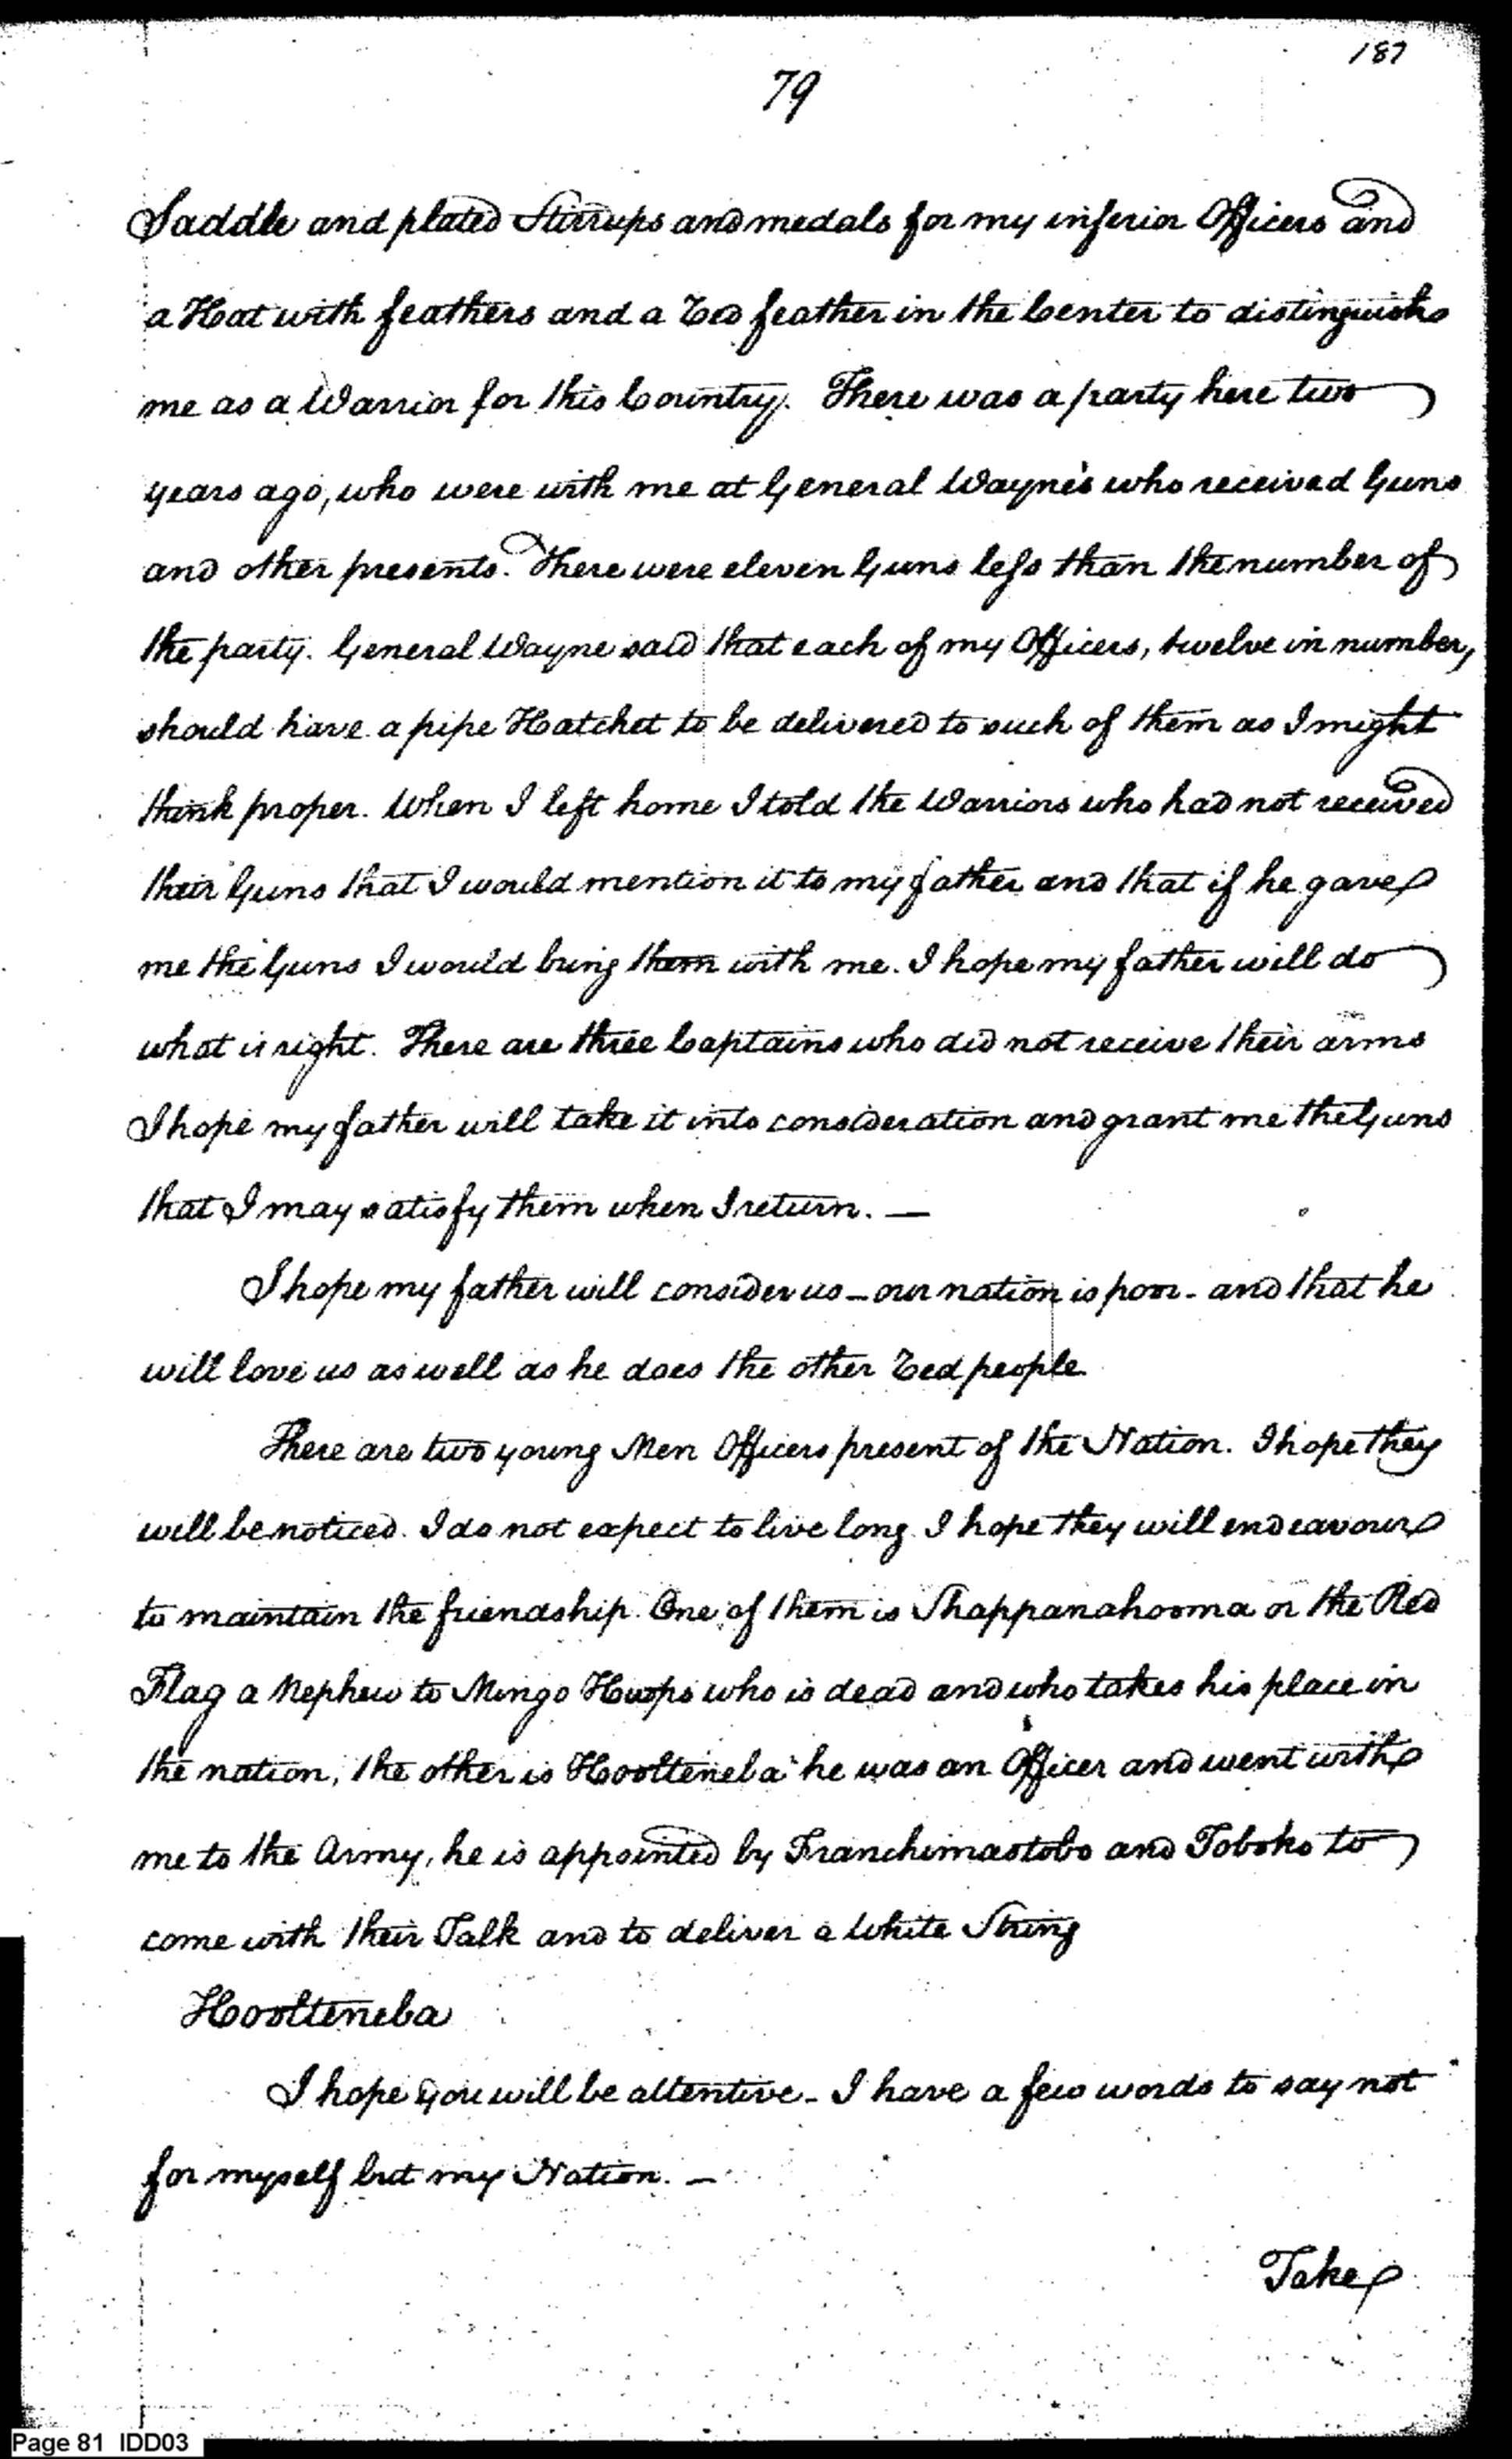 187
79
Saddle and plated Stirrups and medals for my inferior Officers and
a Hat with feathers and a red feather in the Center to distinguish
me as a Warrior for this Country. There was a party here two
years ago, who were with me at General Wayne's who received Guns
and other presents. There were eleven Guns less than the number of
the party. General Wayne said that each of my Officers, twelve in number,
should have a pipe Hatchet to be delivered to such of them as I might
think proper. When I left home I told the Warriors who had not received
their Guns that I would mention it to my father and that if he gave
me the Guns I would bring them with me. I hope my father will do
what is right. There are three Captains who did not receive their arms
I hope my father will take it into consideration and grant me the Guns
that I may satisfy them when I return. —
I hope my father will consider us – our nation is poor – and that he
will love us as well as he does the other red people
There are two young Men Officers present of the Nation. I hope they
will be noticed. I do not expect to live long I hope they will endeavour
to maintain the friendship. One of them is Shappanahooma or the Red
Flag a Nephew to Mingo Hoops who is dead and who takes his place in
the nation, the other is Hooolteneba he was an Officer and went with
me to the Army, he is appointed by Franchimastobo and Toboko to
come with their Talk and to deliver a White String
Hooolteneba
I hope you will be attentive – I have a few words to say not
for myself but my Nation. —
Take
Page 81 IDD03